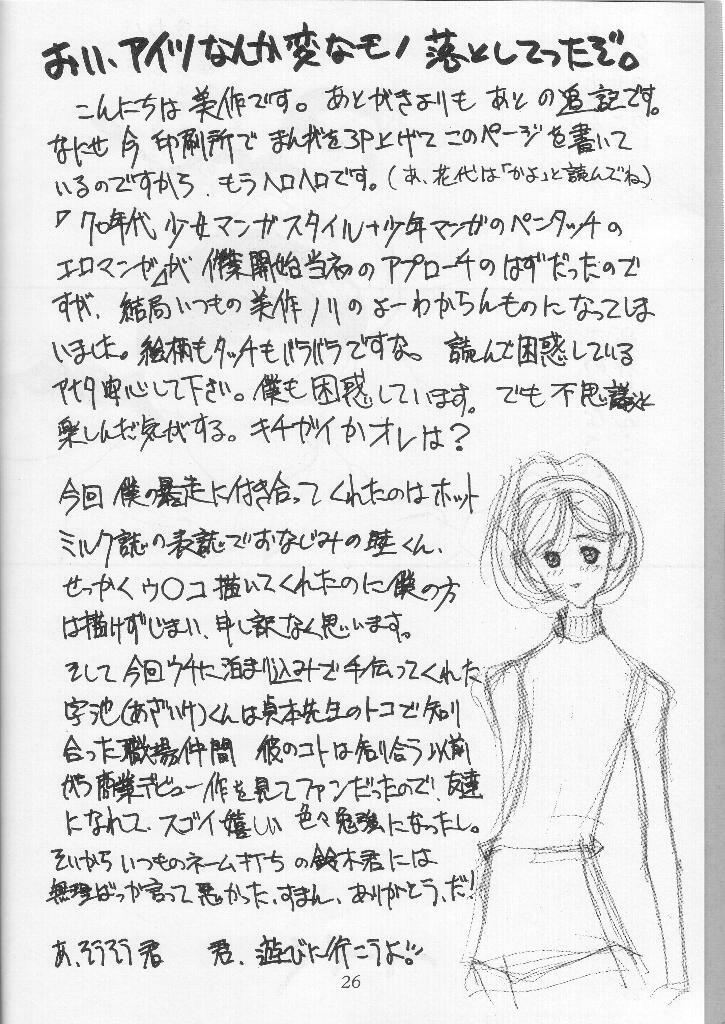 おい、アイツなんか変なモノ落としてったぞ。
こんにちは美作です。あとがきよりも あとの追記です。
なにせ今印刷所でまんがを3P上げてこのページを書いて
いるのですから、もうヘロヘロです。(あ、花代は「かよ」と読んでね。)
『70年代少女マンガスタイル+少年マンガのペンタッチの
エロマンガ』が 作業開始当初のアプローチのはずだったので
すが、結局いつもの美作ノリのよーわからんものになってしま
いました。絵柄もタッチもバラバラですな。読んで困惑している
アナタ安心して下さい。僕も困惑しています。でも不思議と
楽しんだ気がする。キチガイかオレは?
今回僕の暴走に付き合ってくれたのはホット
ミルク誌の表誌でおなじみの睦くん、
せっかくウ○コ描いてくれたのに僕の方
は描けずじまい、申し訳なく思います。
そして今回ウチに泊まり込みで手伝ってくれた
字池(あざいけ)くんは貞本先生のトコで知り
合った職場仲間 彼のコトは知り合う以前
から商業デビュー作を見てファンだったので、友達
になれて、スゴイ嬉しい 色々勉強になったし。
それからいつものネーム打ちの鈴木君には
無理ばっか言って悪かった、すまん、ありがとう、だ!
あ、そうそう君 君、遊びに行こうよ!!
26